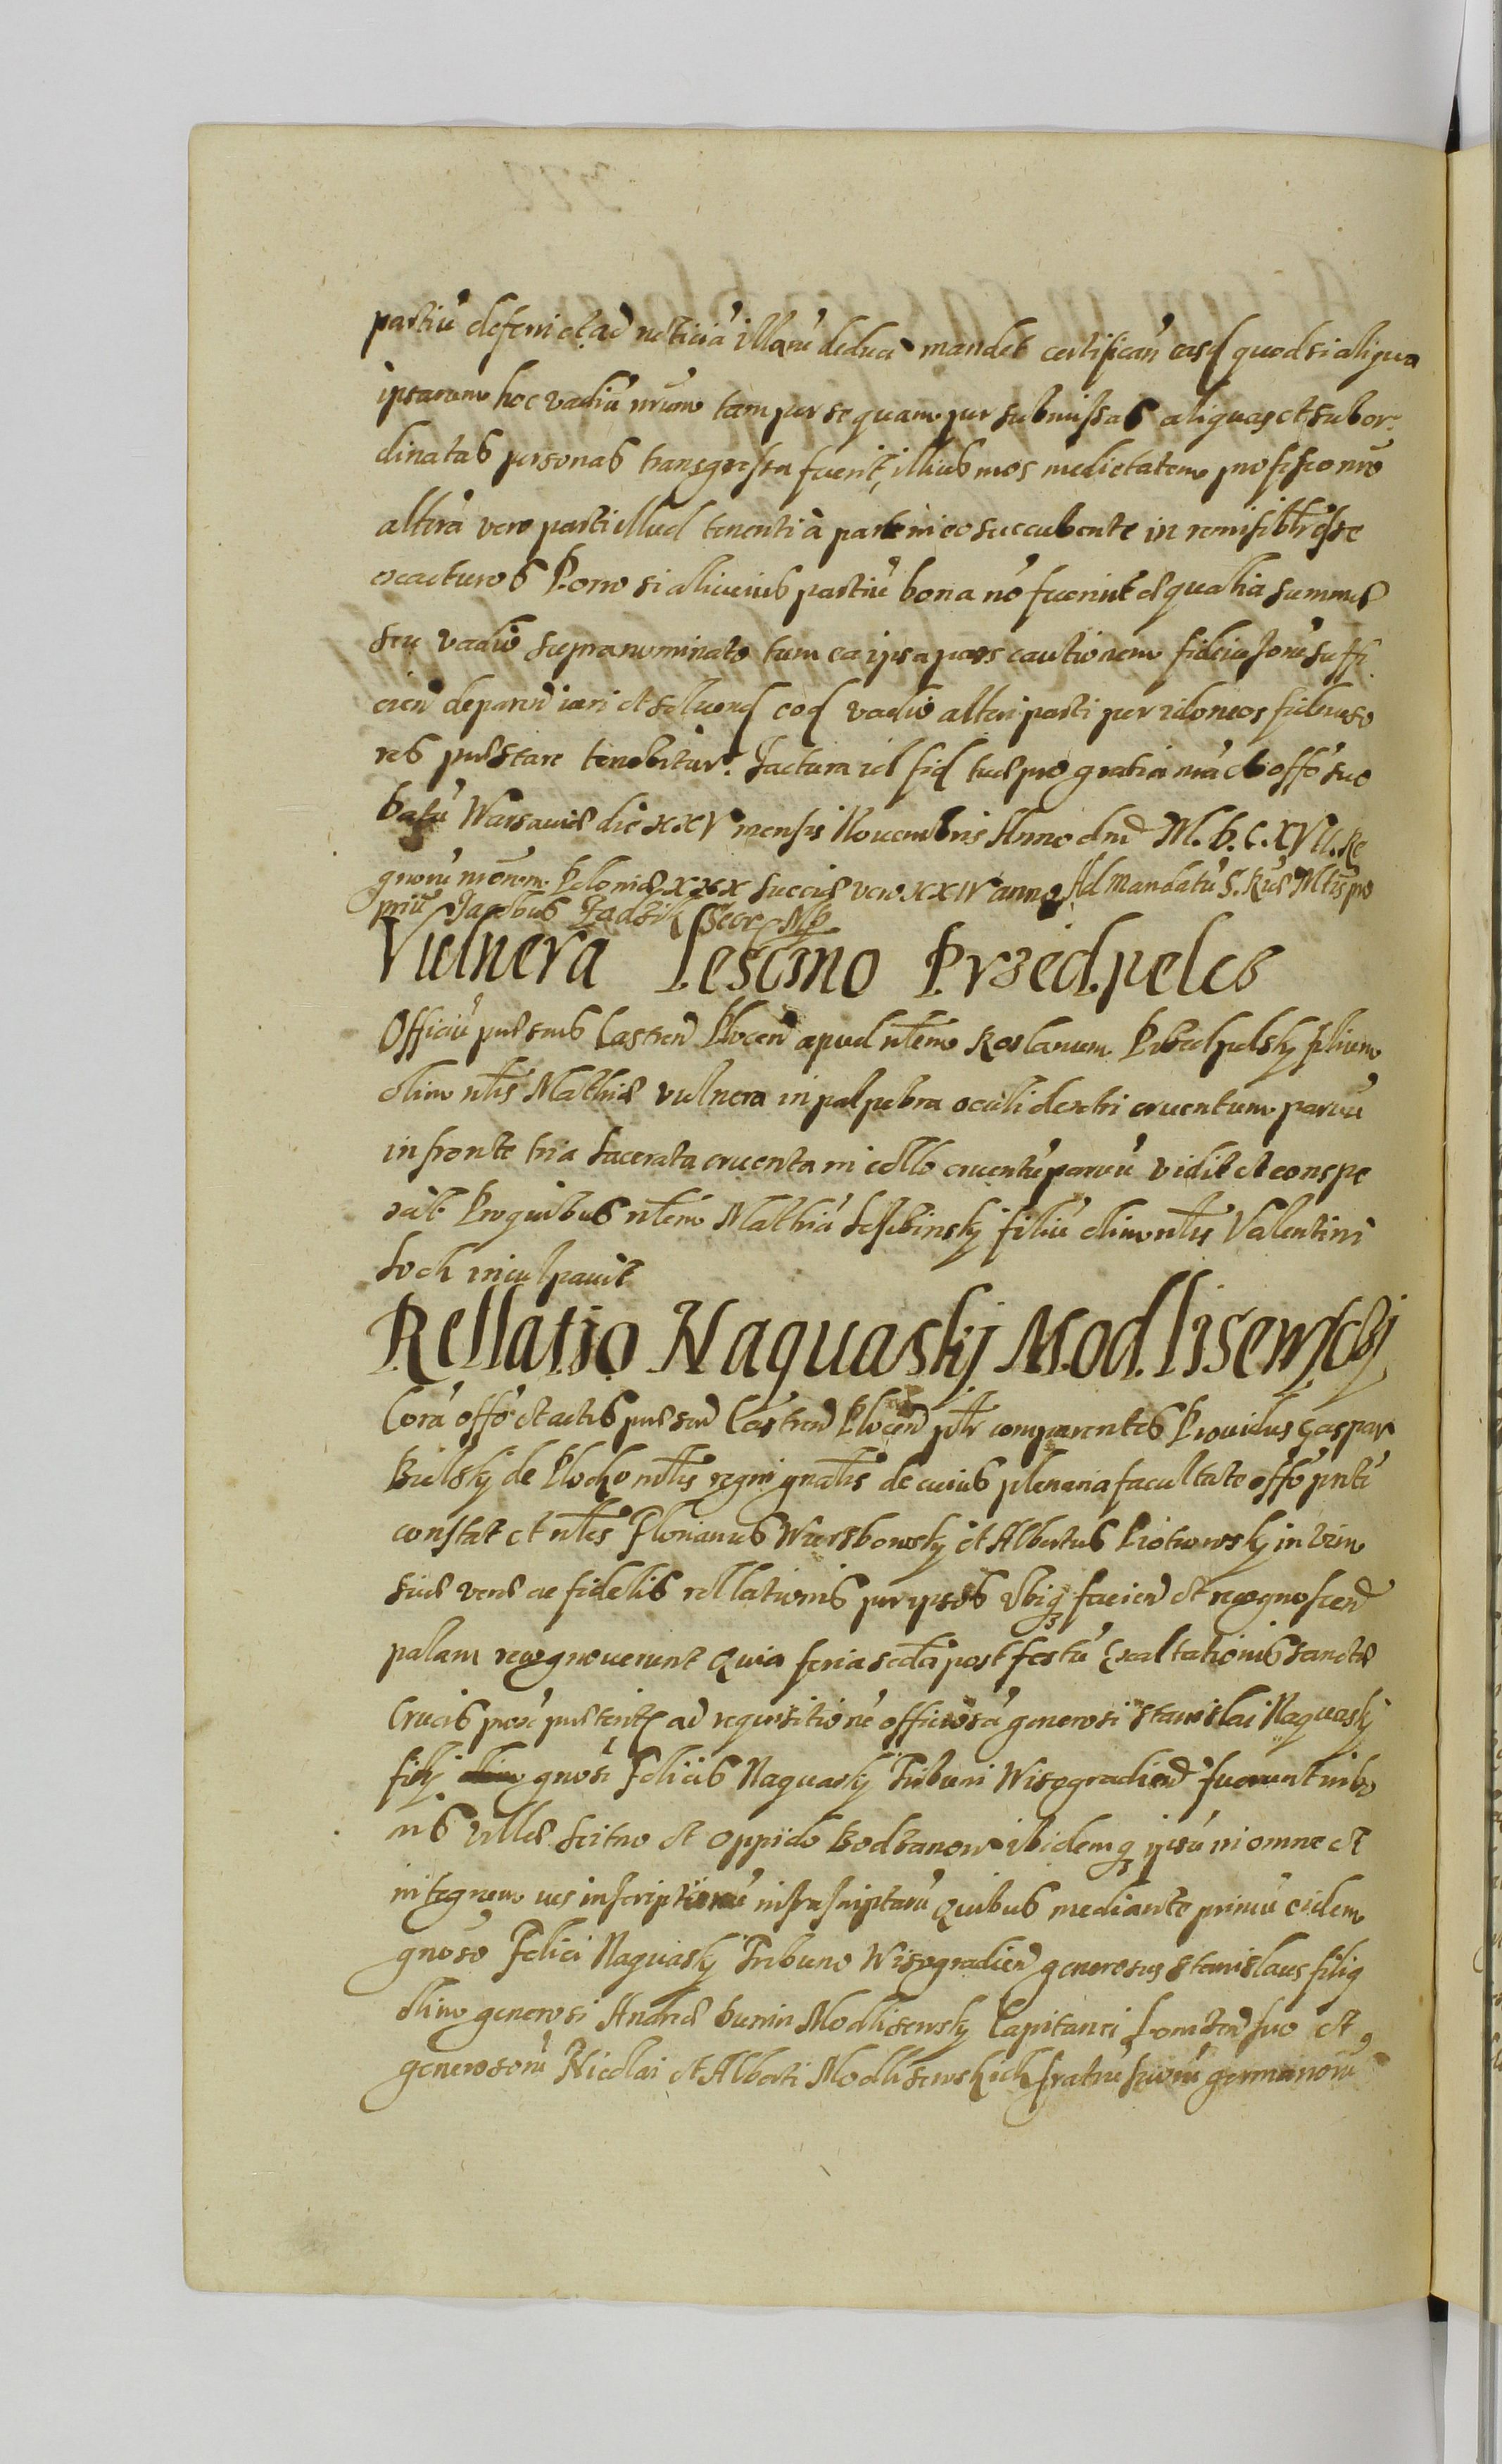 partiū deferri et ad noticiā illarū deduci mandet certificań easd quod si aliqua
ipsarum hoc vadiū nrūm tam per se quam per submissas aliquas et subor-
dinatas personas transgressa fuerit, illius nos medietatem pro fisco nrō
alterā vero parti illud tenenti à parte in eo succubente in remissibtr esse
exacturos Porro si alicuius partiū bona nō fuerint æqualia summæ
seu vadio supranominato tum ea ipsa pars cautionem fideiussoriā suffi
cień de pareń iuri et soluend eod vadio alteri parti per idoneos fideiusso
res præstare tenebitur. Factura id fid tuæ pro gratia nrā et offō suo
Datū Warsauiæ die XXV mensis Nouembris Anno dnī M.D.C.XVII. Re
gnorū nrōrum Poloniæ XXX Sueciæ vero XXIV anno Ad mandatū S. Ræ Mtis pro
priū Jacobus Zadzik Secr Mp
Vulnera Lescino Przedpelcs
Officiū præsens Castreń Plocen̄ apud nłem Roslanum Przedpelsky filium
olim nłis Mathiæ vulnera in palpebra oculi dextri cruentum paruū
in fronte tria lacerata cruenta in collo cruentū paruū vidit et conspe
xit Pro quibus nłem Mathiā filiū olim nłis Valentini
inculpauit
Rellatio Naquaskj Modlisewsczj
Corā offō et actis præsen̄ Castren̄ Plocen̄ płr comparentes Prouidus Gaspar
Bielskj de Plocko nłis regni gnālis de cuius plenaria facultate offō pntī
constat et nłes Florianus Wierzbowsky et Albertus Piotrowsky in vim
suæ veræ ac fidelis rellationis per ipsos vbiq facien̄ et recognoscen̄
palam recognouerunt Quia feria scdā post festū Exaltationis Sanctæ
Crucis prox præterit ad requisitionē officiosā generosi Stanislai Naquaskj
filij gnosi Felicis Naquaskj Tribuni Wisogradien̄ fuerunt in bo
nis villæ Scitno et oppido Bodzanow ibidemq ipsū in omne et
integrum ius inscriptionū infrascriptarū Quibus mediante primū eidem
gnoso Felici Naquaskj Tribuno Wisogradien̄ generosus Stanislaus filiq
olim generosi Andreæ Bunin Modlisewsky Capitanei Lomzen̄ suo et
generosorū Nicolai et Alberti Modlisewskich fratrū suorū germanorū